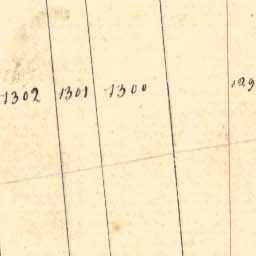 1302 1301 1300